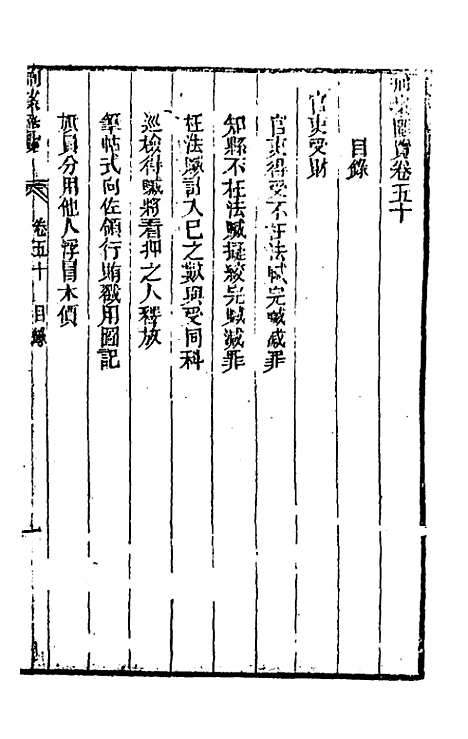 刑案匯覽卷五十
目錄
官吏受財
官吏得受不枉法贓完贓減罪
知縣不枉法贓擬絞完贓減罪
枉法贓計入已之數與受同科
巡檢得贓將看押之人釋放
筆帖式向佐領行賄戳用圖記
旗員分用他人浮冒木價
刑案匯覽 卷五十 目錄 一